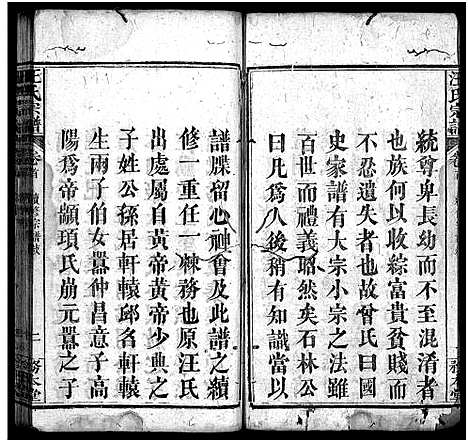 統尊卑長幼而不至混淆者
也然得以收綜富貴貧賤而
不忍遺失者也曾氏曰國
史家譜有大宗小宗之法雖
百世而禮義昭然矣石林公
曰凡爲人後稍有知識當以
譜牒留心神會及此譜之續
修一重任一棘務也原汪氏
出處屬自黃帝黃帝少典之
子姓公孫居軒轅邱名軒轅
生兩子伯女囂仲昌意子高
陽爲帝顓頊氏崩元囂之子
汪氏宗譜
卷首
續修宗譜
二
務本堂
汪氏宗譜
卷首
務本堂